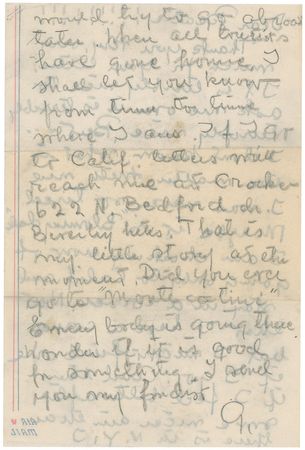 would try to go abroad
later when all tourists
have gone home. I
shall let you know
from time to time
where I am. If I go
to Calif. letters will
reach me at Crocker
622 N. Bedford dr.
Beverly hills. That is
my little story at the
moment. Did you ever
go to "Montecatini"
Everybody is going there
wonder if it is good
for something. I send
you my fondest